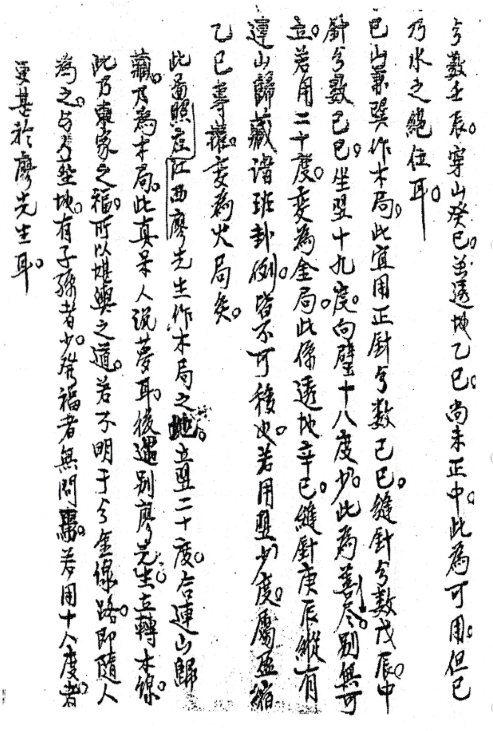 分數壬辰。穿山癸巳。並透地乙巳。尚未正中。此為可用。但巳
乃水之絕位耳。
巳山兼巽作木局。此宜用正針分數己巳。縫針分數戊辰。中
針分數己巳。坐翌十九度。向璧十八度少。此為善。盡別無可
立。若用二十度。變為金局。此係透地辛巳。縫針庚辰。縱有
連山歸藏諸班卦例。皆不可移也。若用翌少度。屬盈縮
乙巳專權。變為火局矣。
此昌照庄江西廖先生作木局之地。立翌二十度。合連山歸
藏。乃為木局。此真呆人說夢耳。後遇別廖先生立轉木線。
此乃東家之福。所以堪輿之道。若不明于分金線路。即隨人
為之。与分坐地。有子孫者少。發福者無問焉。若用十八度者。
更甚於廖先生耳。